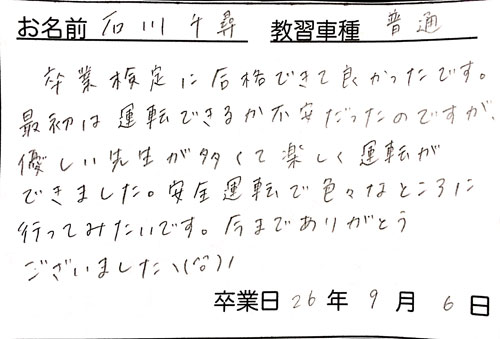 お名前 石川千尋 教習車種 普通
卒業検定に合格できて良かったです。
最初は運転できるか不安だったのですが、
優しい先生が多くて楽しく運転が
できました。安全運転で色々なところに
行ってみたいです。今までありがとう
ございましたヽ(^o^)ノ
卒業日 26年 9月 6日